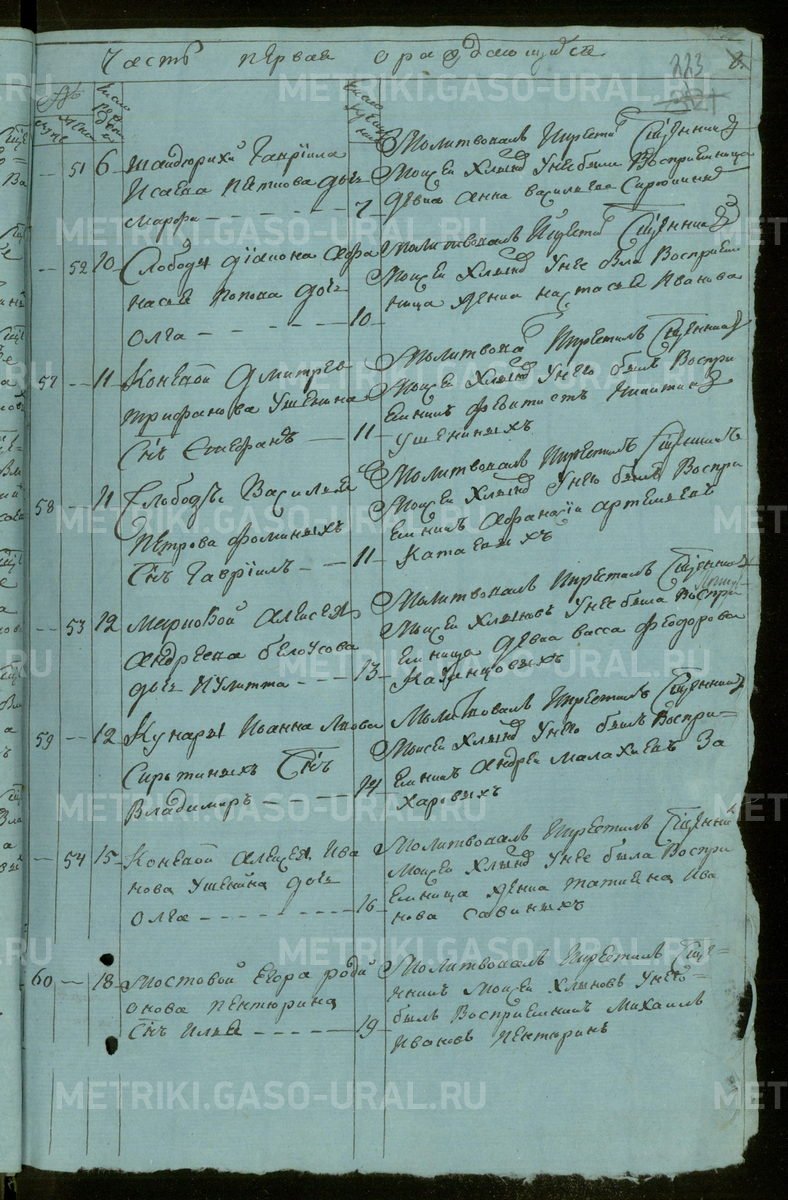 Часть первая о раждающихся
223
51 6 Шайдюрихи Гавріила
Исаева Петкова дочь
Марфа 7
Молитвовалъ Икрестил Сщенник
Моисей Хлынов Унее была Восприемница
девка Анна Василиева
52 10 Слободы Афа
насьева Попова дочь
Олга 10
Молитвовалъ Икрестил Сщенник
Моисей Хлынов Унее была Восприем
ница Настасья Иванова
57 11 Коневой Дмитрея
Трифанова Ушенина
Снъ Стефанъ 11
Молитвовал Икрестилъ Сщенник
Моисей Хлынов Унего былъ Воспри
емникъ Феоктистъ Никитин
Ушениныхъ
58 11 Слободы Василья
Петрова Фоминыхъ
Снъ Гавріилъ 11
Молитвовалъ Икрестилъ Сщенникъ
Моисей Хлынов Унего былъ Воспри
емникъ Афанасіи Артемьевъ
Катаевыхъ
53 12 Алексея
Андреева Белоусова
дочь Иулитта 13
Молитвовалъ Икрестилъ Сщенник
Моисей Хлыновъ Унее была Воспри
емница девка Васса Феодорова
Казанцовыхъ
59 12 Кунары Иоанна Лвова
Снъ
Владимиръ 14
Молитвовалъ Икрестилъ Сщенник
Моисей Хлынов Унего былъ Воспри=
емникъ Андрей Малахиевъ За
харовыхъ
54 15 Коневой Алексея Ива
нова Ушенина дочь
Олга 16
Молитвовалъ Икрестилъ Сщенник
Моисей Хлынов Унее была Воспри
емница Татиена Ива
нова Савиныхъ
60 18 Мостовой Егора Роди
онова Пентюрина
Снъ Илья 19
Молитвовалъ Икрестилъ Сще=
нникъ Моисей Хлыновъ Унего=
былъ Восприемникъ Михаилъ
Ивановъ Пентюринъ
METRIKI.GASO-URAL.RU